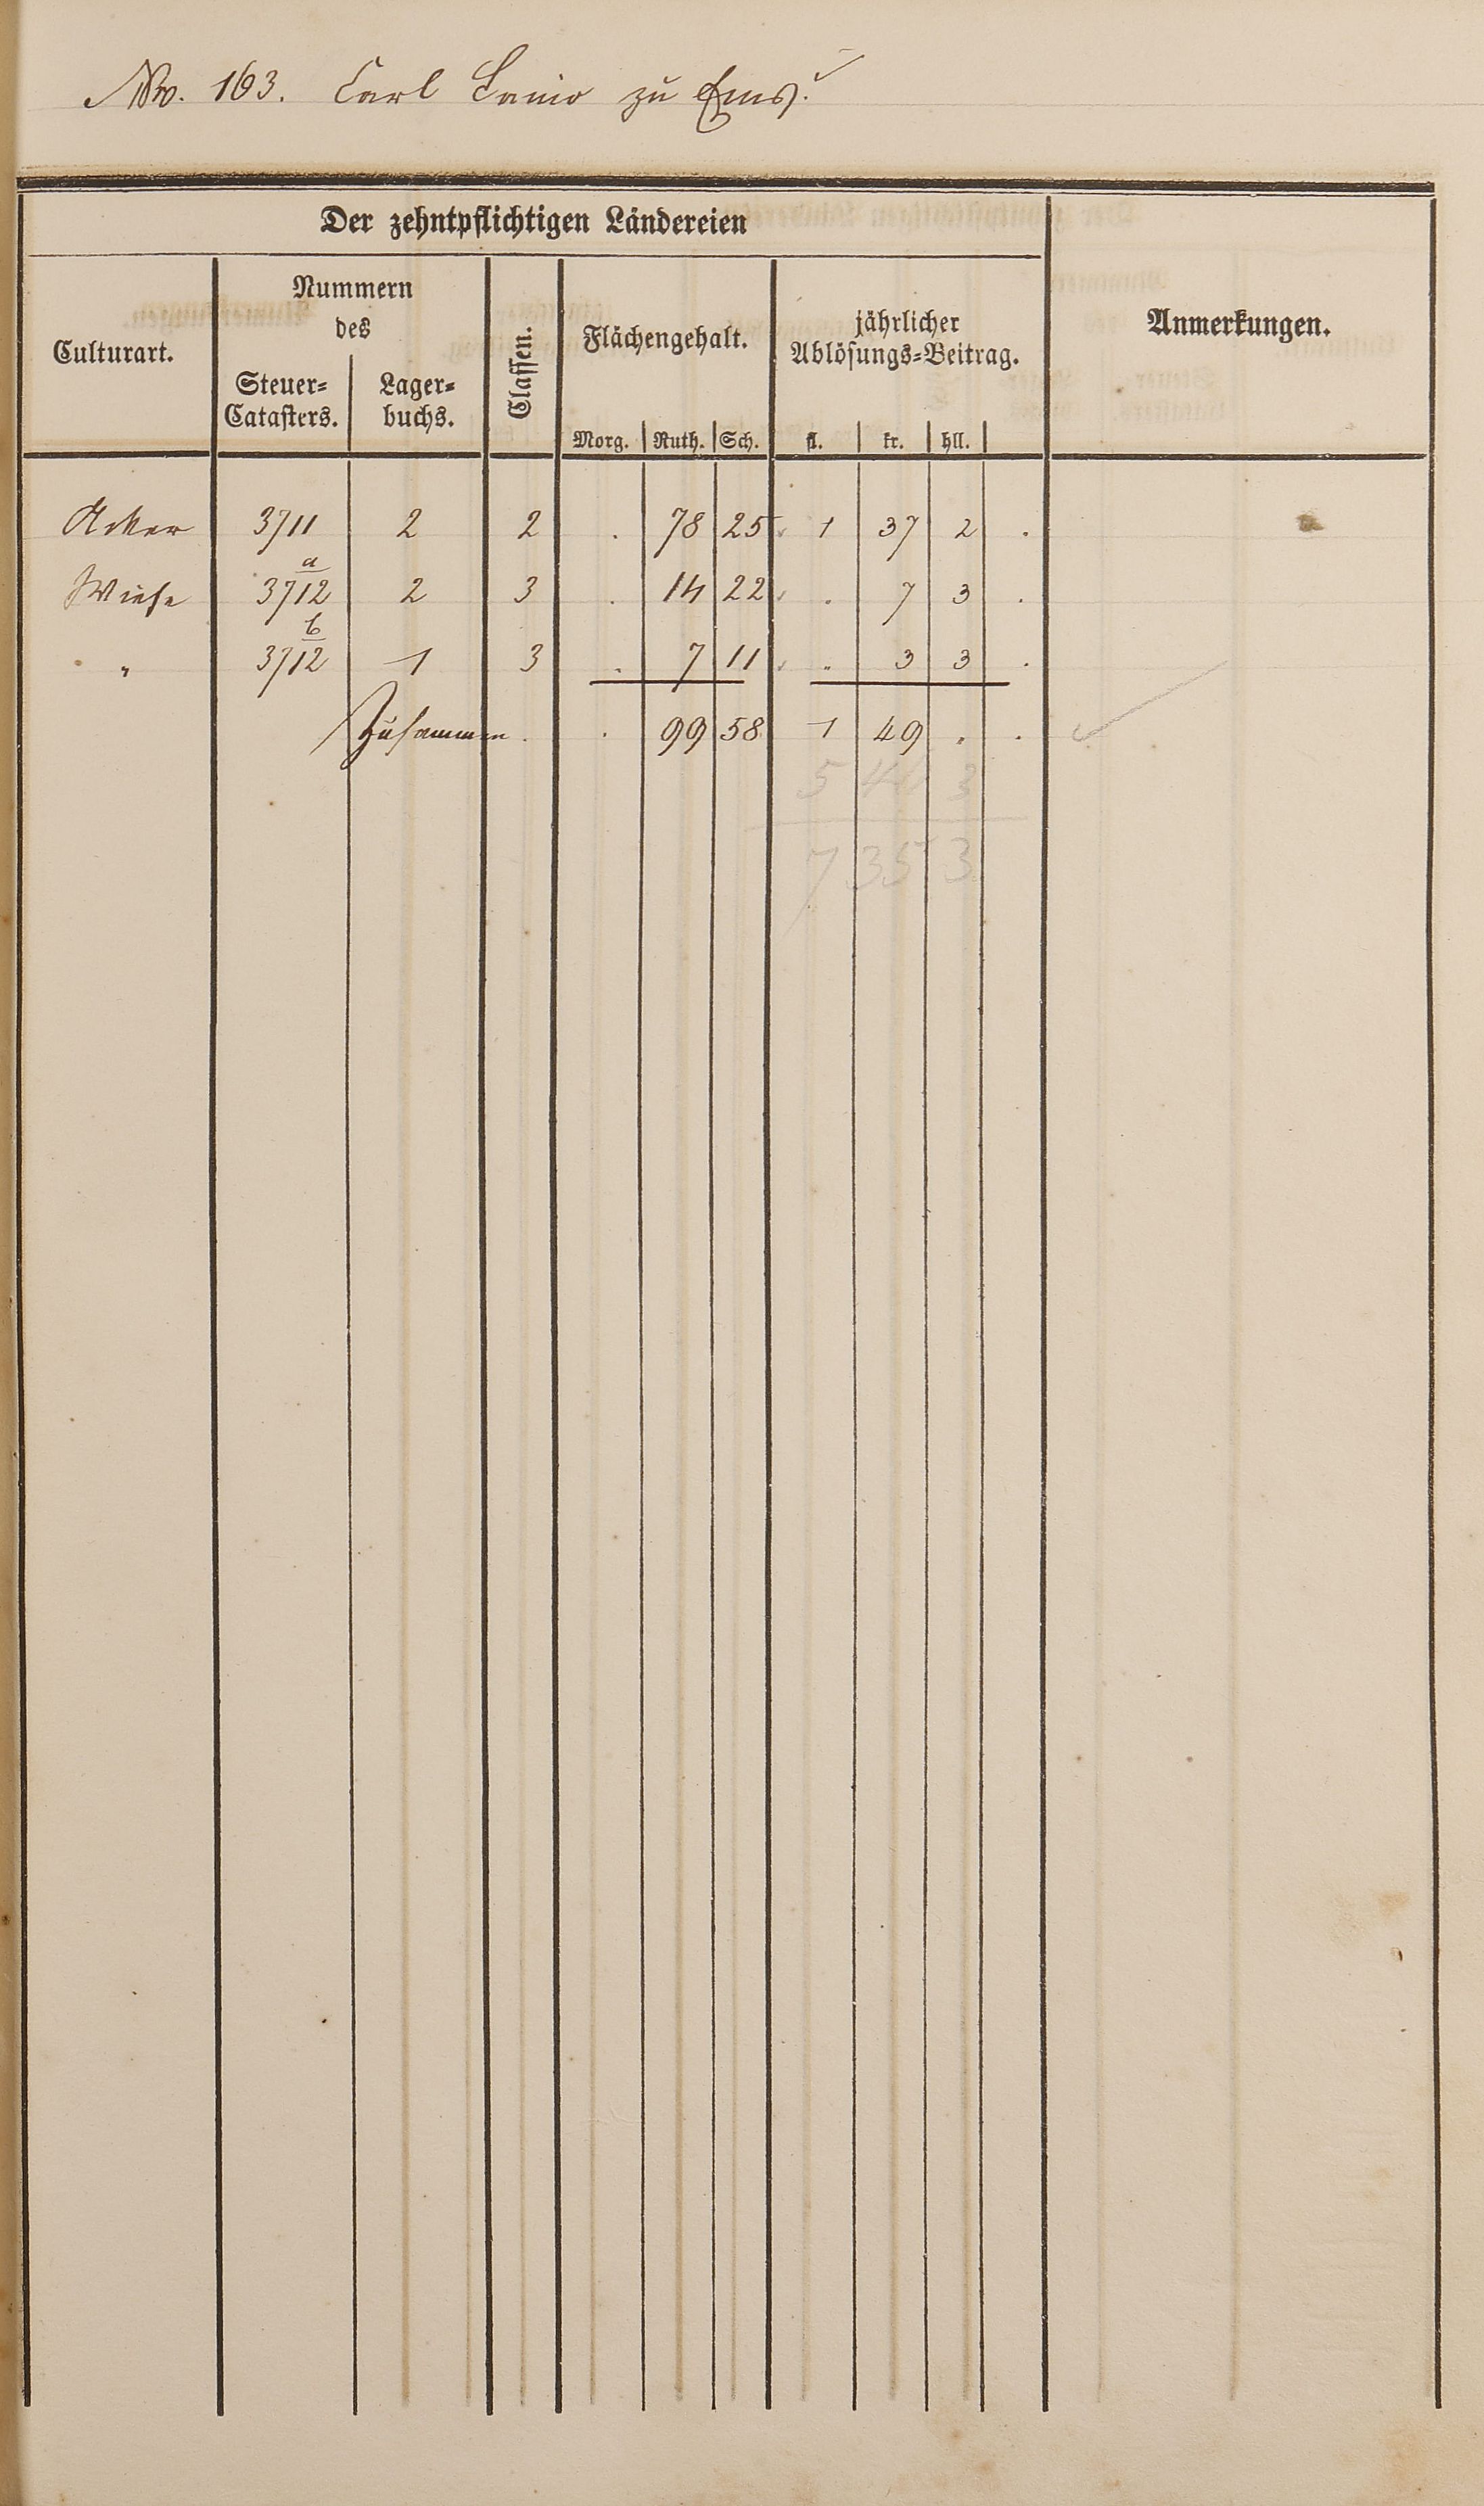 No. 163. Carl Lanio zu Ems.
Der zehntpflichtigen Ländereien
Culturart.
Nummern
des
Steuer-
Catasters.
Lager-
buchs.
Classen.
Flächengehalt.
Morg. Ruth. Sch.
jährlicher
Ablösungs-Beitrag.
fl. kr. hll.
Anmerkungen.
Acker 3711 2 2 . 78 25 1 37 2 .
Wiese 3712 a 2 3 . 14 22 . 7 3 .
" 3712 b 1 3 . 7 11 .. 3 3 .
Zusammen . . 99 58 1 49 . .
5 46 3
7 35 3